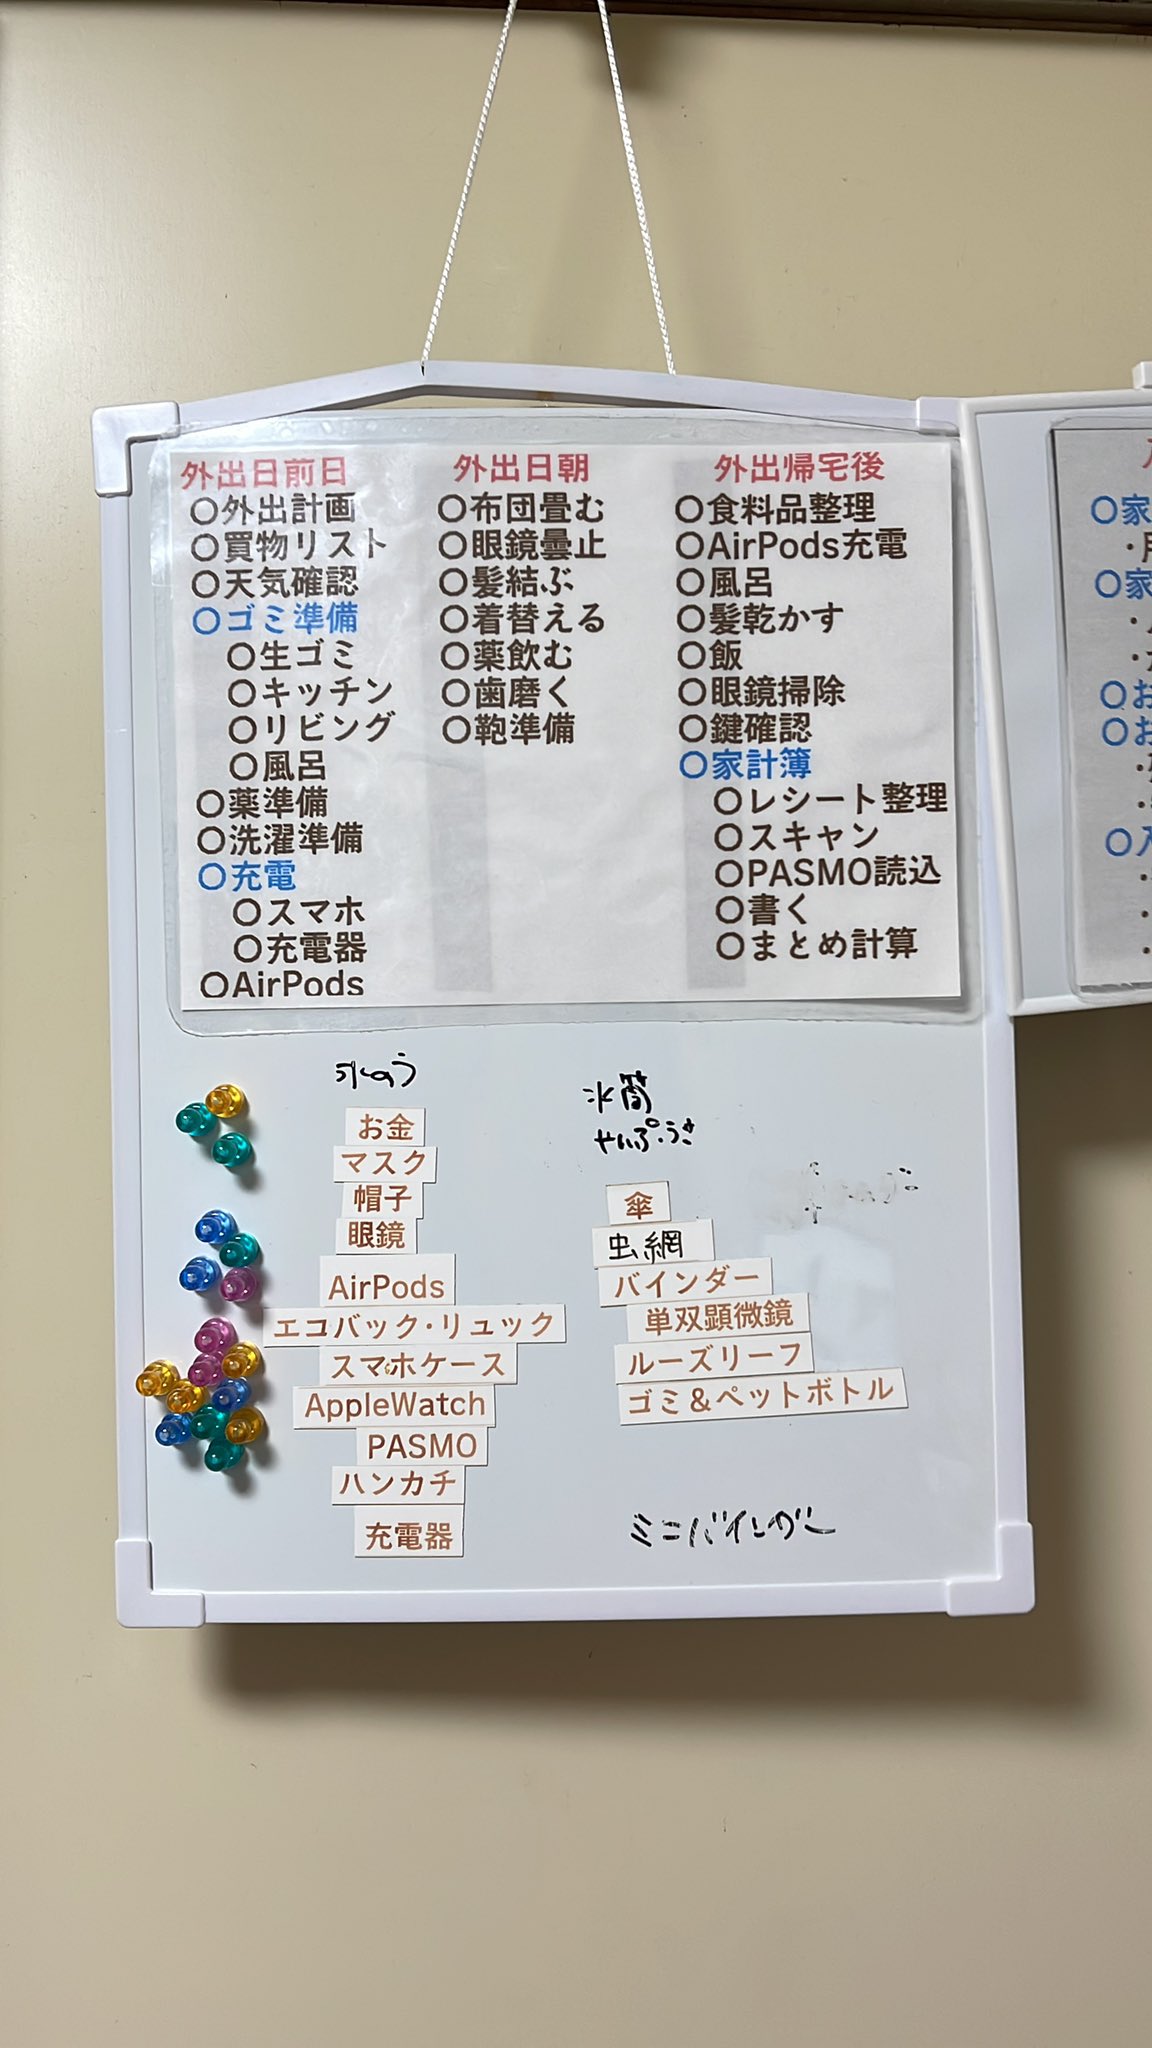 外出日前日
〇外出計画
〇買物リスト
〇天気確認
〇ゴミ準備
〇生ゴミ
〇キッチン
〇リビング
〇風呂
〇薬準備
〇洗濯準備
〇充電
〇スマホ
〇充電器
〇AirPods
外出日朝
〇布団畳む
〇眼鏡曇止
〇髪結ぶ
〇着替える
〇薬飲む
〇歯磨く
〇鞄準備
外出帰宅後
〇食料品整理
〇AirPods充電
〇風呂
〇髪乾かす
〇飯
〇眼鏡掃除
〇鍵確認
〇家計簿
〇レシート整理
〇スキャン
〇PASMO読込
〇書く
〇まとめ計算
〇家
〇家
〇お
〇お
氷のう
お金
マスク
帽子
眼鏡
AirPods
エコバック・リュック
スマホケース
AppleWatch
PASMO
ハンカチ
充電器
水筒
傘
虫網
バインダー
単双顕微鏡
ルーズリーフ
ゴミ&ペットボトル
ミニバインダー